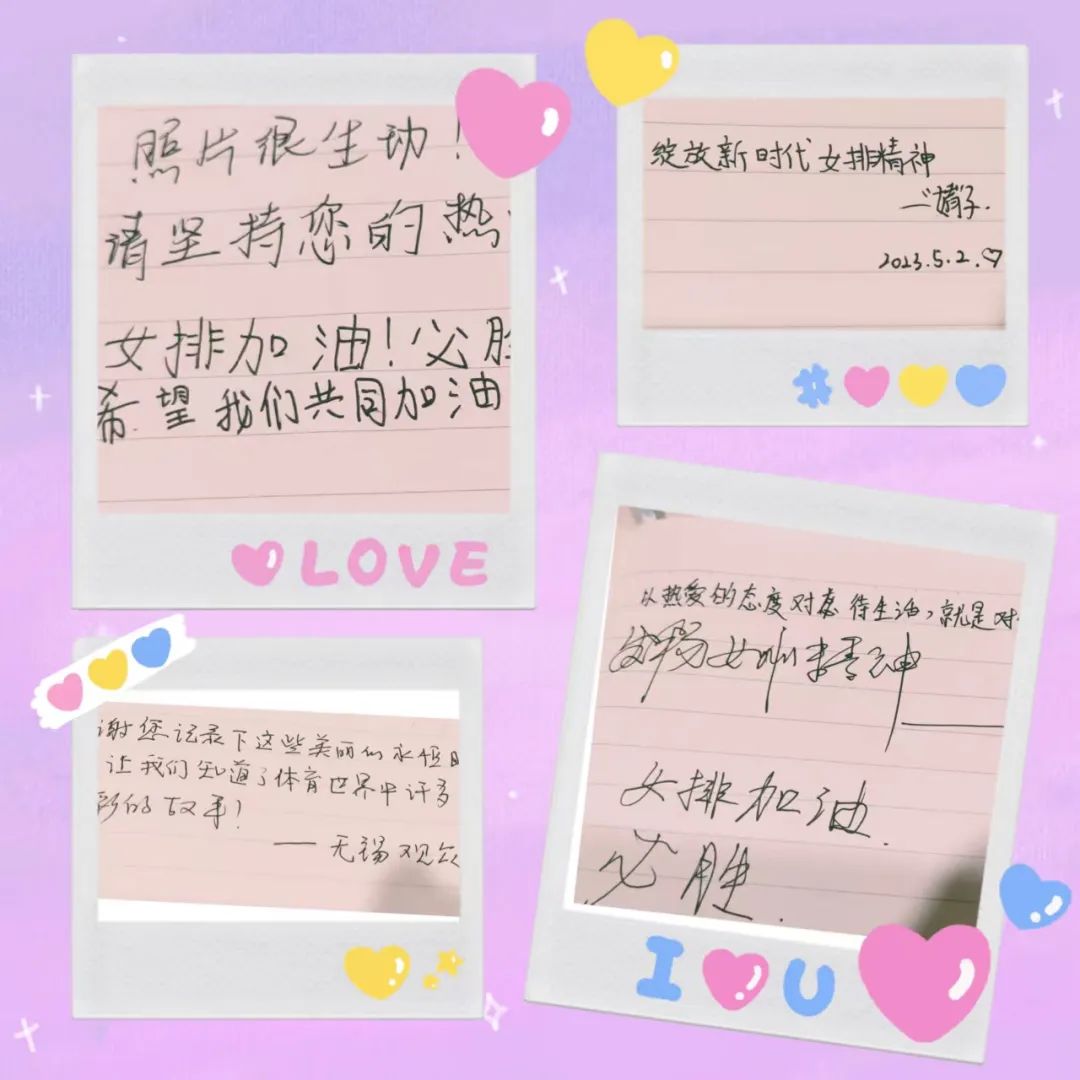 照片很生动！
请坚持您的热
女排加油！必胜
希望我们共同加油
LOVE
绽放新时代女排精神
2023.5.2.
谢您记录下这些美丽的永恒
让我们知道了体育世界中许多
彩的故事！
——无锡观众
以热爱的态度对待生活，就是对
发扬女排精神
女排加油
必胜.
I U